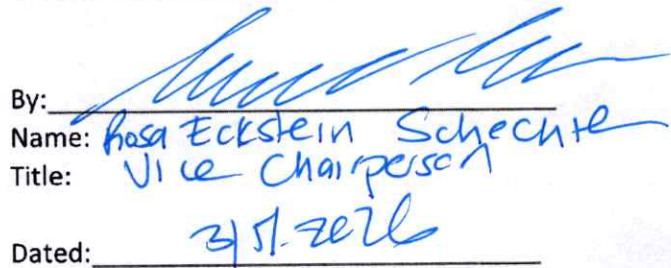 By:
Name: Rosa Eckstein Schechter
Title: Vice Chairperson
Dated: 3/5/2026